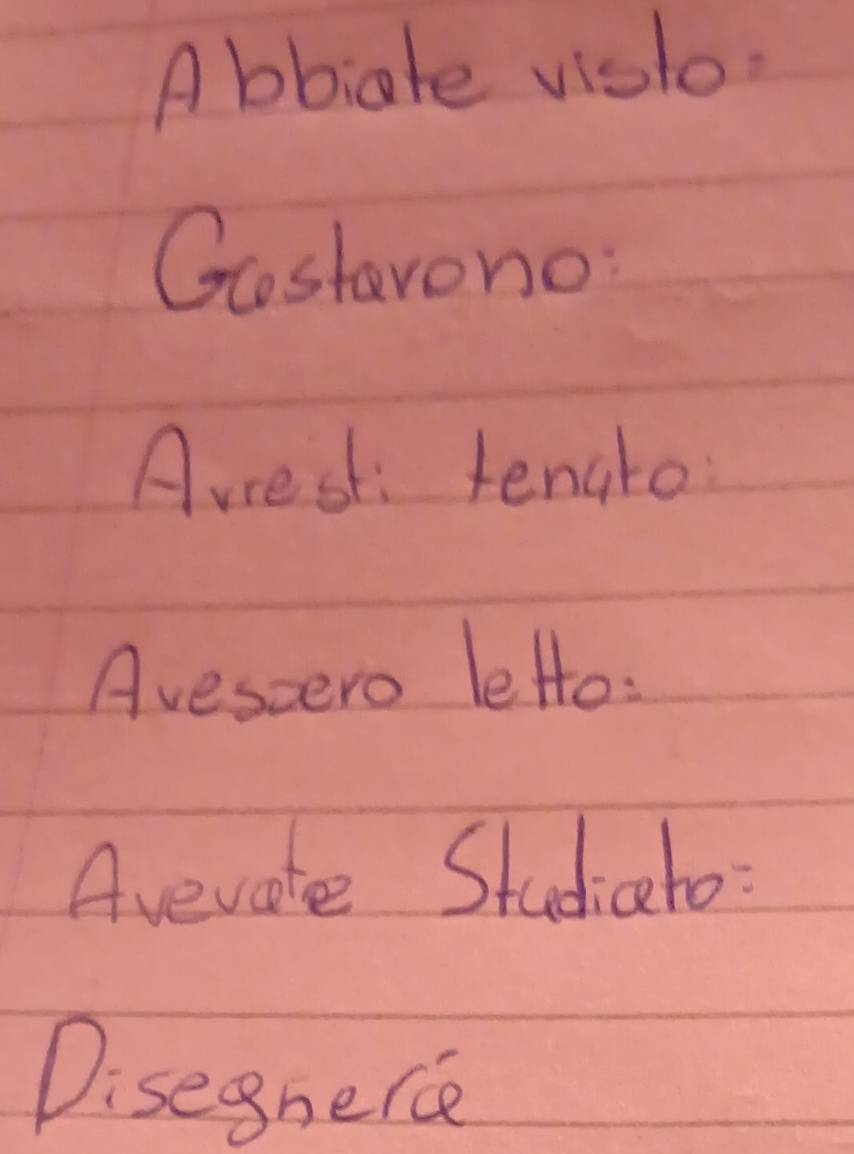 Abbiate visto:
Gustarono:
Avresti tenuto:
Avessero letto:
Avevate Studiato:
Disegnerà